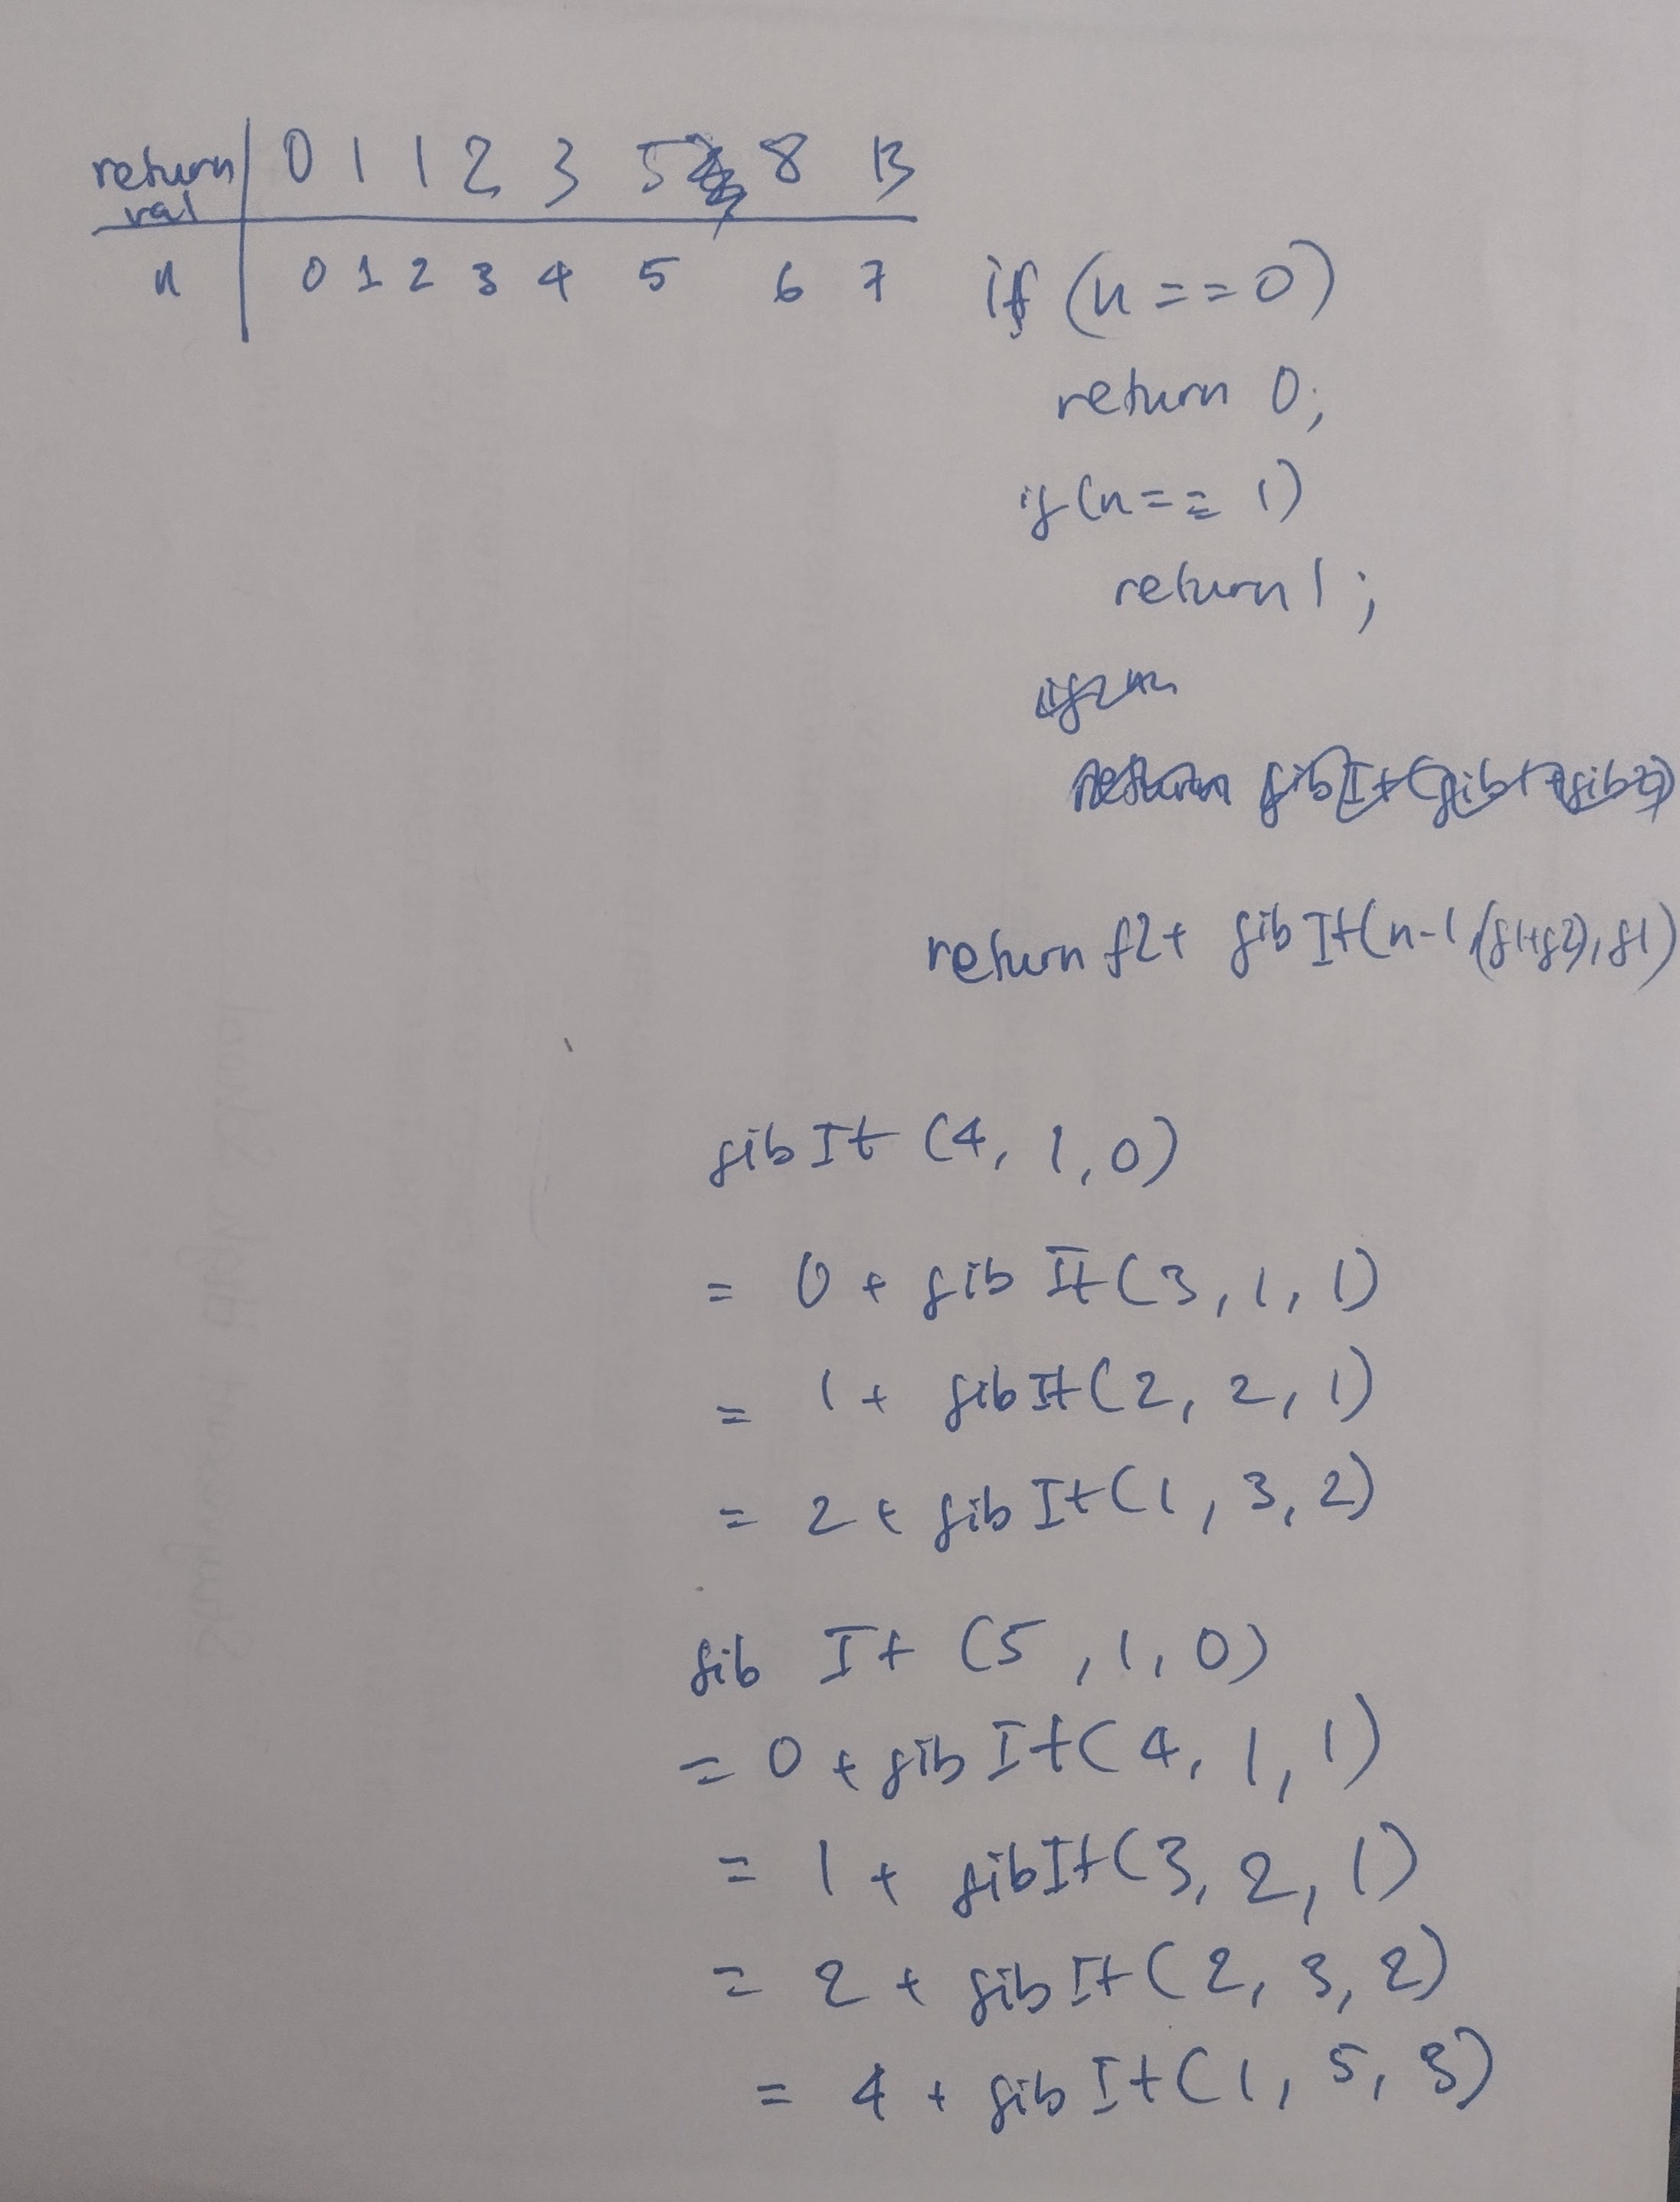 return 0 1 1 2 3 5 8 13
val
n 0 1 2 3 4 5 6 7
if (n == 0)
return 0;
if (n == 1)
return 1;
return fibIt(fib1+fib2)
return f2+ fibIt(n-1,(f1+f2),f1)
fibIt (4, 1,0)
= 0 + fib It(3,1,1)
= 1+ fibIt(2,2,1)
= 2+ fibIt(1,3,2)
fib It (5,1,0)
= 0 + fib It(4,1,1)
= 1 + fibIt(3,2,1)
= 2 + fibIt(2,3,2)
= 4 + fib It(1,5,3)